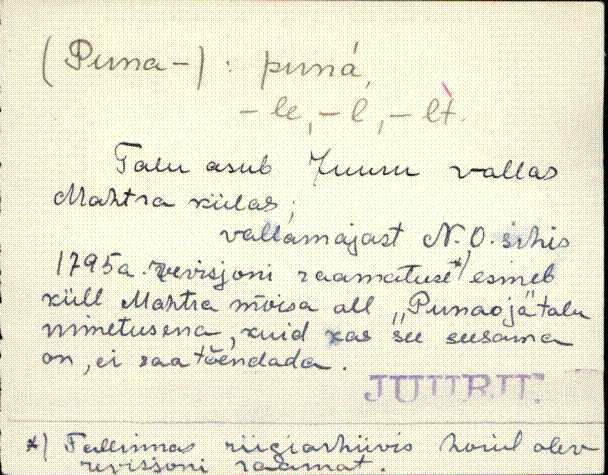 (Puna-): puná,
-le, -l, -lt̀.
Talu asub Juuru vallas
Mahtra külas,
vallamajast N.O. sihis
1795a. revisjoni raamatuse*) esineb
küll Mahtra mõisa all „Punaoja" talu
nimetusena, kuid kas see seesama
on, ei saa tõendada.
JUURU.
*) Tallinnas riigiarhiivis hoiul olev
revisjoni raamat.